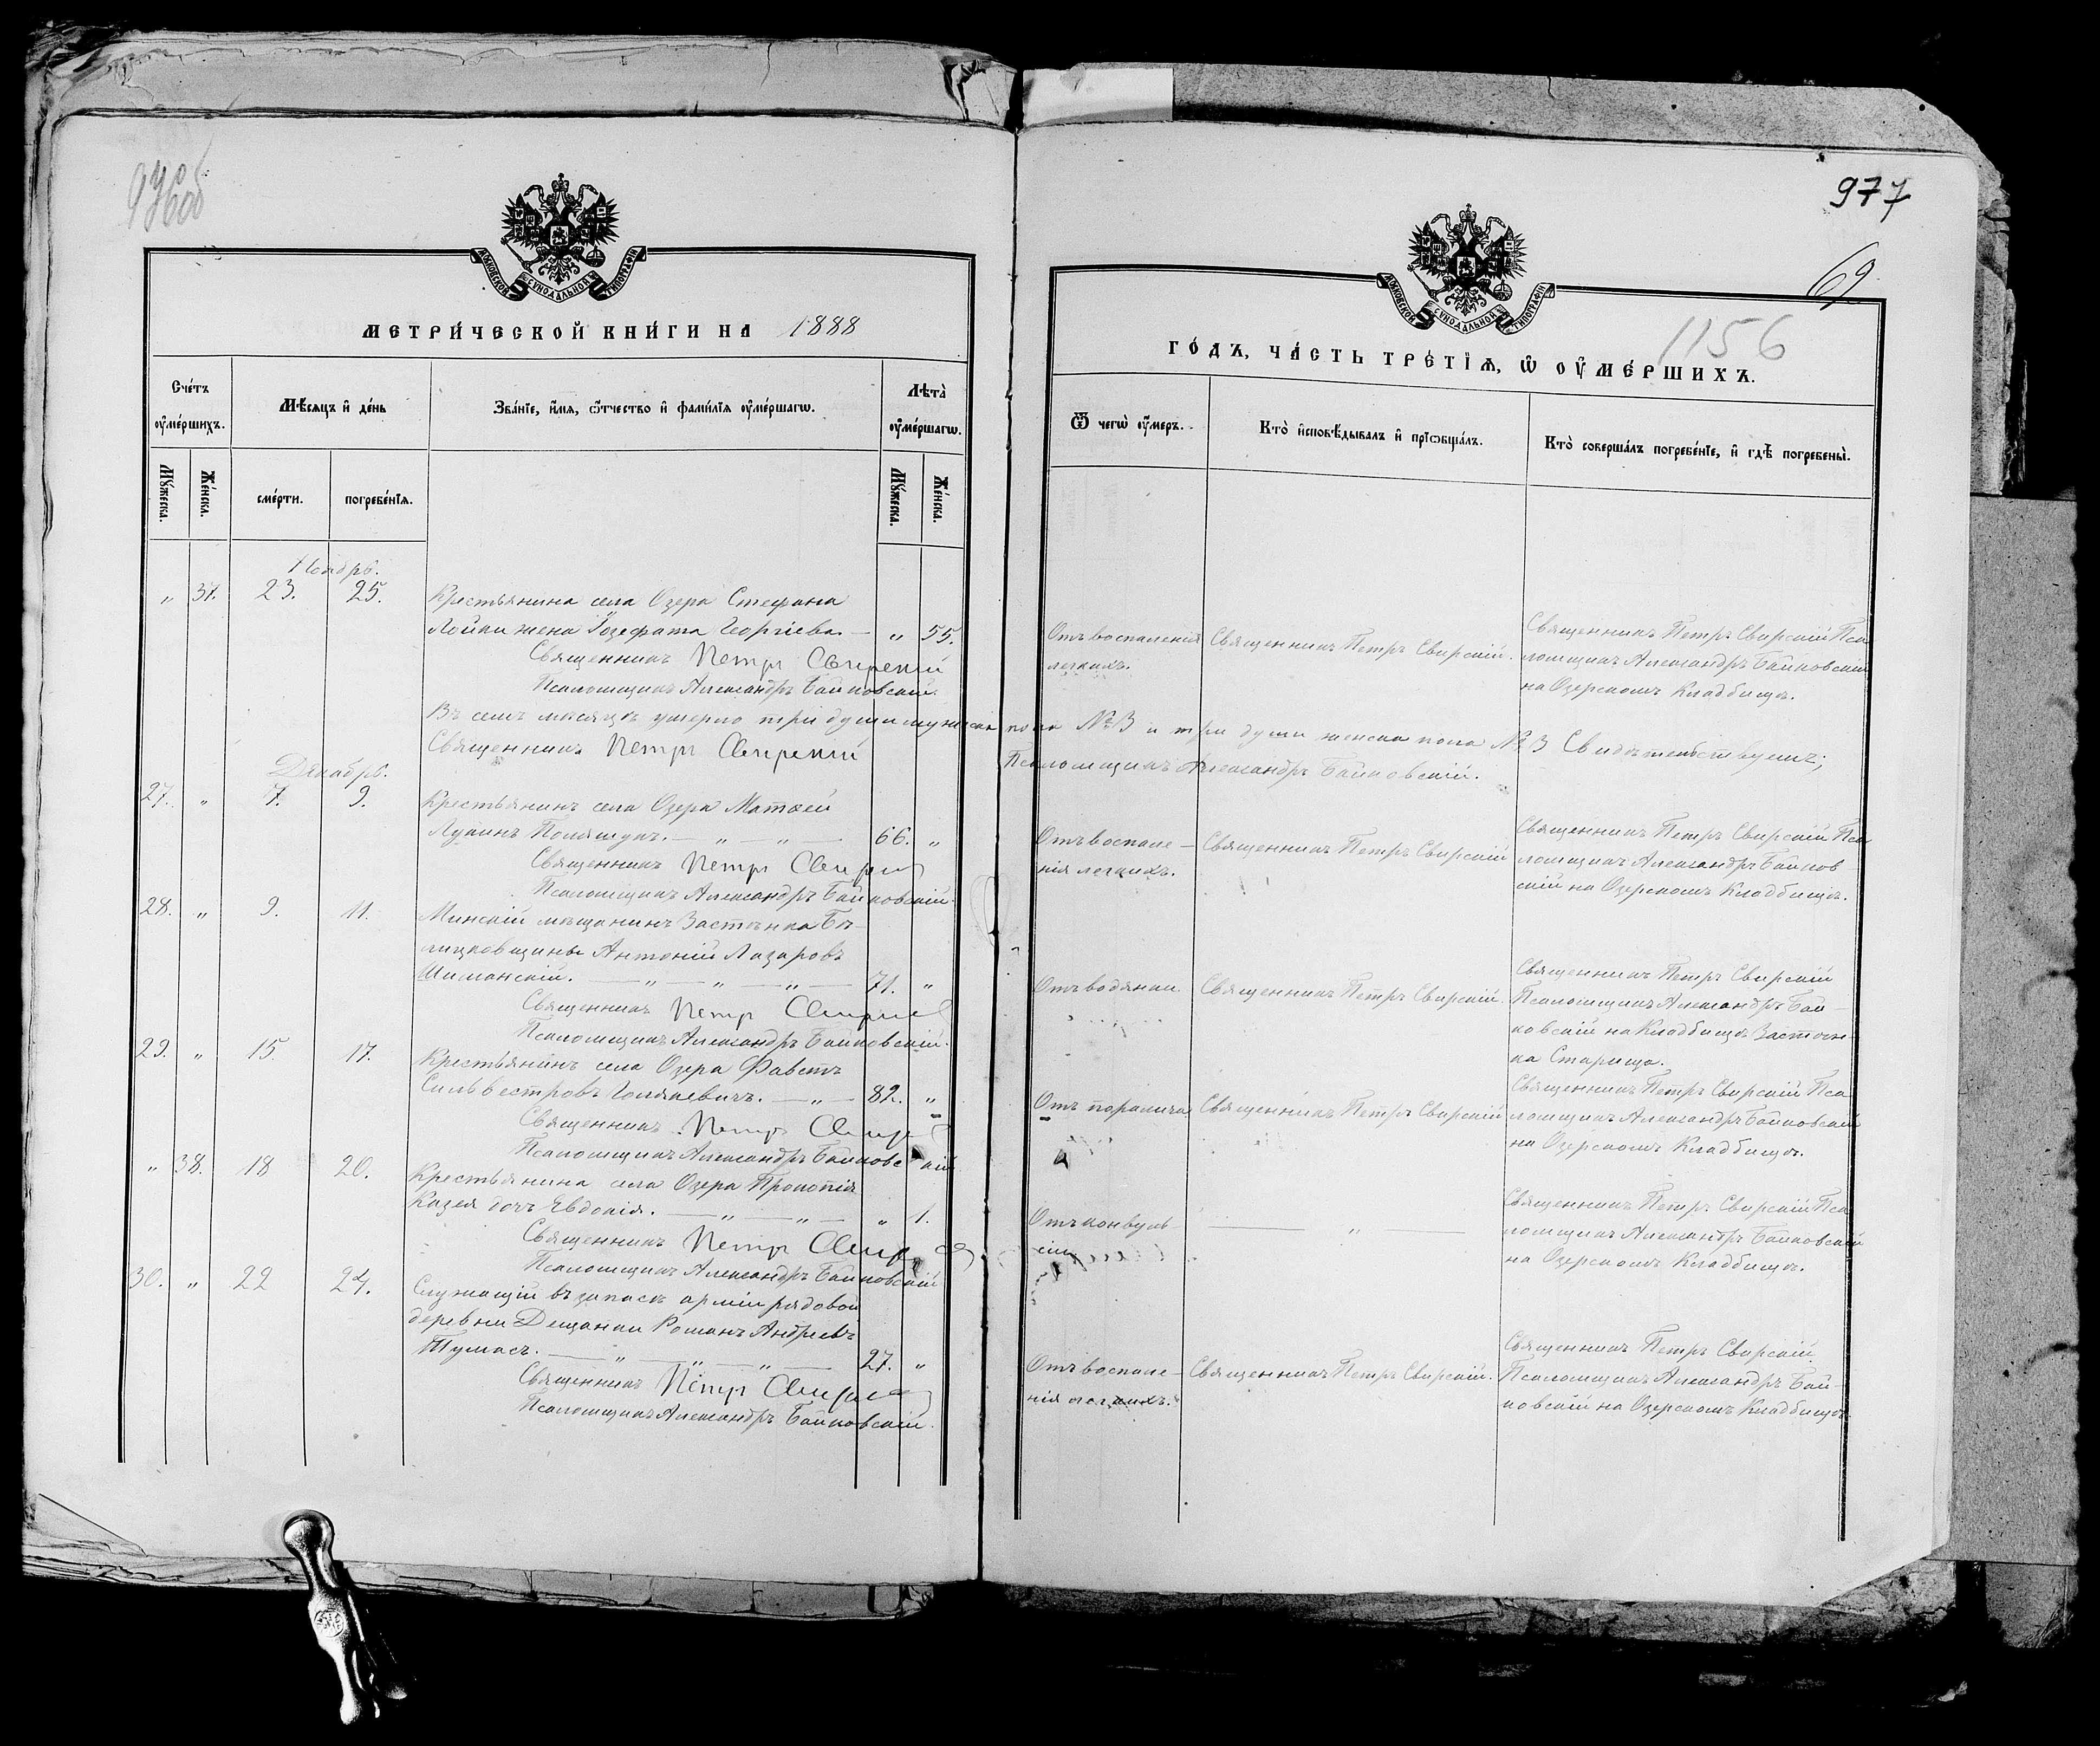 976об
МОСКОВСКОЙ СѴНОДАЛЬНОЙ ТИПОГРАФІИ
МЕТРИ́ЧЕСКОЙ КНИ́ГИ НА 1888
Сче́тъ ᲂу҆ме́ршихъ.
Мѣ́сяцъ и҆ де́нь
Зва́нїе, и҆́мя, ѻ҆́тчество и҆ фами́лїя ᲂу҆ме́ршагѡ.
Лѣта̀ ᲂу҆ме́ршагѡ.
Мꙋ́жеска.
Же́нска.
сме́рти.
погребе́нїѧ.
Мꙋ́жеска.
Же́нска.
Ноябрь.
„ 37. 23. 25. Крестьянина села Озера Стефана
Лойки жена Іозефата Георгіева. — „ 55.
Священникъ Петръ Свирскій
Псаломщикъ Александръ Байковскій.
Въ семъ мѣсяцѣ умерло три души мужска пола № 3 и три души женска пола № 3 Свидѣтельствуемъ;
Священникъ Петръ Свирскій Псаломщикъ Александръ Байковскій.
Декабрь.
27. „ 7. 9. Крестьянинъ села Озера Матѳей
Лукинъ Полящукъ. — „ — „ — 66. „
Священникъ Петръ Свирскій
Псаломщикъ Александръ Байковскій.
28. „ 9. 11. Минскій мѣщанинъ Застѣнка Бѣ-
лицковщины Антоній Лазаровъ
Шиманскій. — „ — „ — „ — 71. „
Священникъ Петръ Свирскій
Псаломщикъ Александръ Байковскій.
29. „ 15. 17. Крестьянинъ села Озера Фавстъ
Сильвестровъ Голякевичъ. — „ — 82. „
Священникъ Петръ Свирскій
Псаломщикъ Александръ Байковскій
„ 38. 18 20. Крестьянина села Озера Прокопія
Казея дочь Евдокія. — „ — „ — „ 1.
Священникъ Петръ Свирскій
Псаломщикъ Александръ Байковскій
30. „ 22 24. Служащій въ запасѣ арміи рядовой
деревни Дещанки Романъ Андреевъ
Тумасъ. — „ — „ — „ — 27. „
Священникъ Петръ Свирскій
Псаломщикъ Александръ Байковскій.
977
69
1156
МОСКОВСКОЙ СѴНОДАЛЬНОЙ ТИПОГРАФІИ
ГО́ДЪ, ЧА́СТЬ ТРЕ́ТЇѦ, Ѡ҆ ОУ҆МЕ́РШИХЪ.
Ѿ чегѡ̀ ᲂу҆́меръ.
Кто̀ и҆сповѣ́дывалъ и҆ прїѡбща́лъ.
Кто̀ соверша́лъ погребе́нїе, и҆ гдѣ̀ погребены̀.
Отъ воспаленія Священникъ Петръ Свирскій. Священникъ Петръ Свирскій Пса
легкихъ. ломщикъ Александръ Байковскій
на Озерскомъ Кладбищѣ.
Отъ воспале- Священникъ Петръ Свирскій Священникъ Петръ Свирскій Пса
нія легкихъ. ломщикъ Александръ Байков
скій на Озерскомъ Кладбищѣ.
Отъ водянки. Священникъ Петръ Свирскій. Священникъ Петръ Свирскій
Псаломщикъ Александръ Бай-
ковскій на Кладбищѣ Застѣн-
ка Старища.
Отъ паралича Священникъ Петръ Свирскій Священникъ Петръ Свирскій Пса
ломщикъ Александръ Байковскій
на Озерскомъ Кладбищѣ.
Отъ конвуль- — „ — Священникъ Петръ Свирскій Пса
сіи ломщикъ Александръ Байковскій
на Озерскомъ Кладбищѣ.
Отъ воспале- Священникъ Петръ Свирскій. Священникъ Петръ Свирскій.
нія легкихъ. Псаломщикъ Александръ Бай-
ковскій на Озерскомъ Кладбищѣ